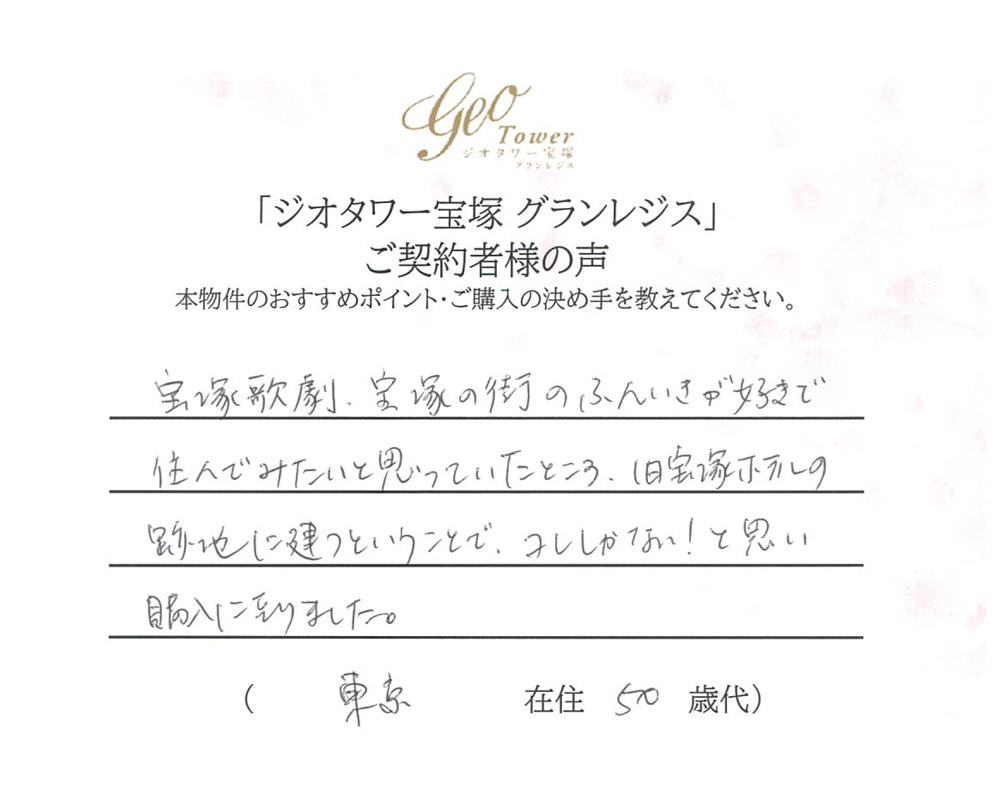 Geo
Tower
ジオタワー宝塚
グランレジス
「ジオタワー宝塚 グランレジス」
ご契約者様の声
本物件のおすすめポイント・ご購入の決め手を教えてください。
宝塚歌劇、宝塚の街のふんいきが好きで
住んでみたいと思っていたところ、旧宝塚ホテルの
跡地に建つということで、コレしかない!と思い
購入に至りました。
( 東京 在住 50 歳代)